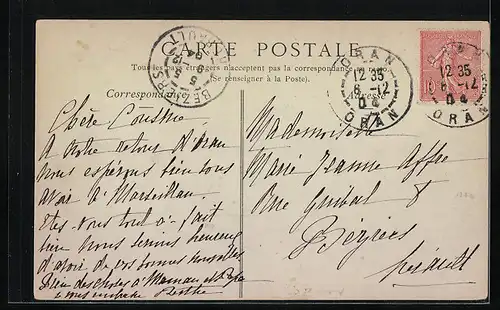 CARTE POSTALE
Tous les pays étrangers n'acceptent pas la correspondance
(Se renseigner à la Poste).
Correspondance
Adresse
BEZIERS HERAULT
ORAN
12 35
8 -12
04
ORAN
12 35
8 -12
04
ORAN
10
Chère Cousine
A notre retour d'Oran
nous espérons bien vous
voir à Marseillan.
Etes-vous tout à fait
bien nous serions heureux
d'avoir de vos bonnes nouvelles
Bien des choses à Maman et Papa
Berthe
Mademoiselle
Marie Jeanne Affre
Rue Guibal 8
Béziers
Hérault